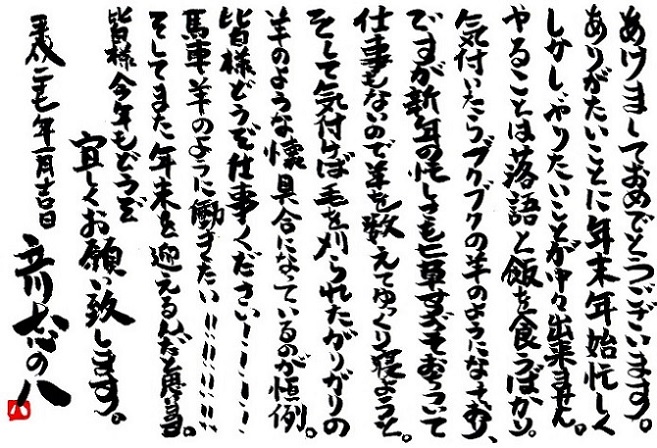 あけましておめでとうございます。
ありがたいことに年末年始忙しく
しかし、やりたいことが中々出来ません。
やることは落語と飯を食うばかり。
気付いたらブクブクの羊のようになっており、
ですが新年の忙しさも七草すぎておちついて
仕事もないので羊を数えてゆっくり寝ようと。
そして気付けば毛を刈られたがりがりの
羊のような懐具合になっているのが恒例。
皆様どうぞ仕事ください！！！！
馬車羊のように働きたい！！！！！！
そしてまた年末を迎えるんだと思います。
皆様今年もどうぞ
宜しくお願い致します。
平成二十七年一月吉日
立川志の八
八